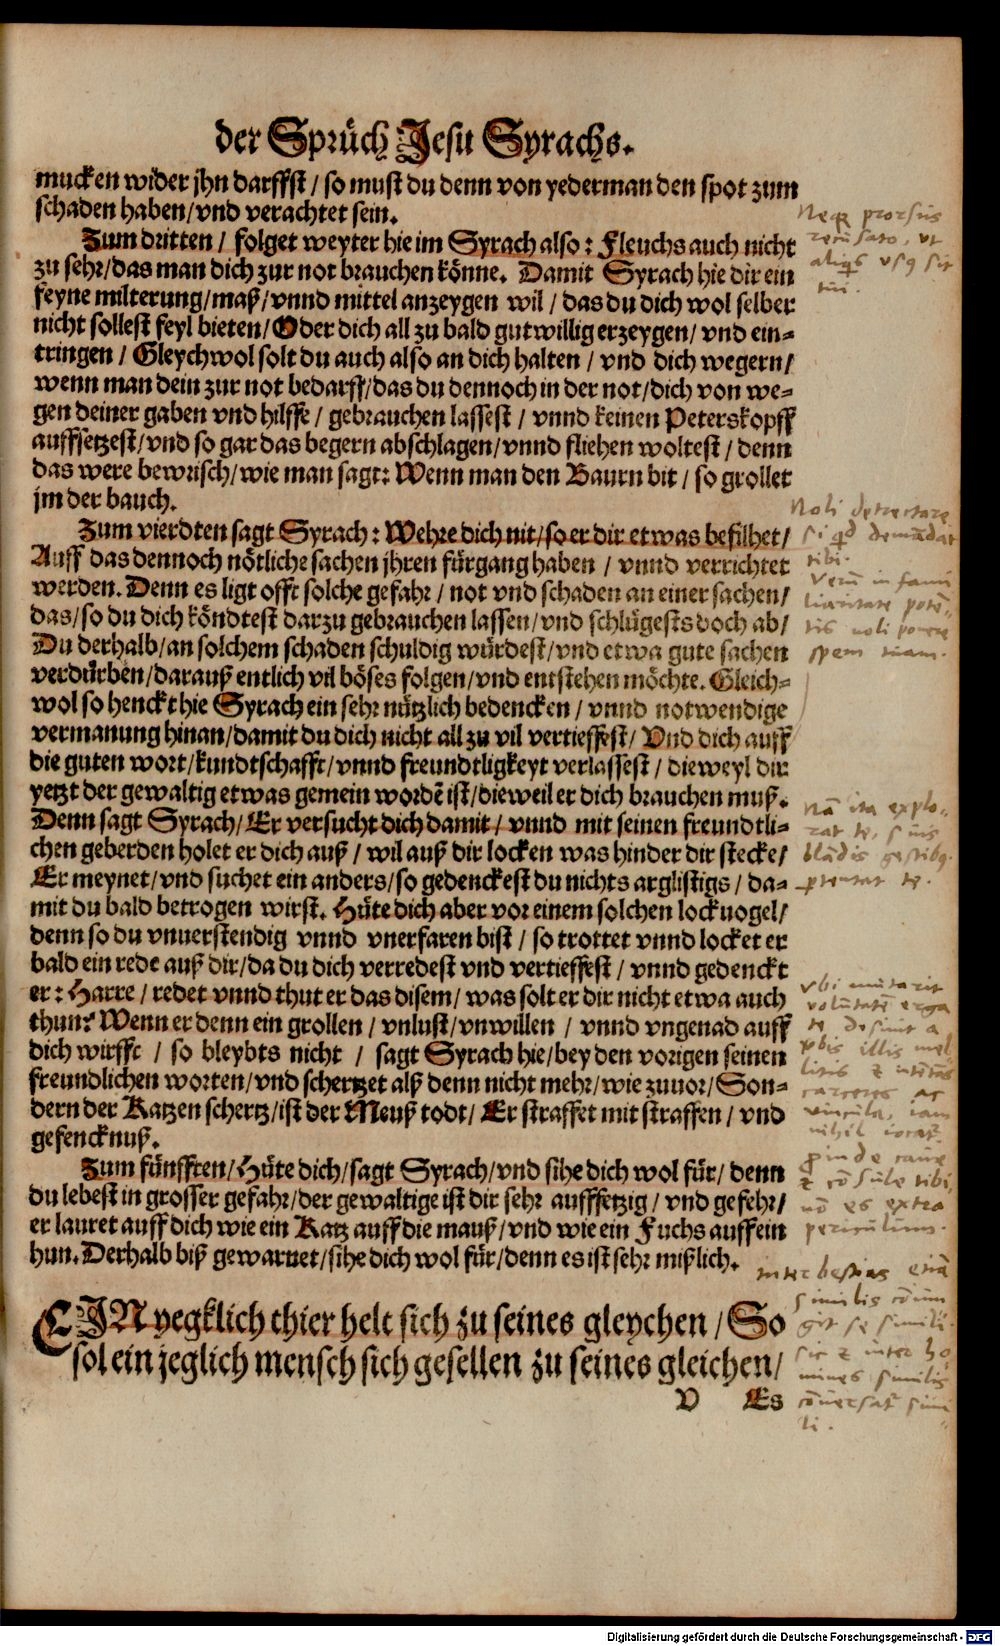 der Sprüch Jesu Syrachs.
mucken wider jhn darffst / so must du denn von yederman den spot zum
schaden haben/vnd verachtet sein.
Zum dritten / folget weyter hie im Syrach also: Fleuchs auch nicht
zu sehr/das man dich zur not brauchen könne. Damit Syrach hie dir ein
feyne milterung/maß/vnnd mittel anzeygen wil / das du dich wol selber
nicht sollest feyl bieten/Oder dich all zu bald gutwillig erzeygen/ vnd ein=
tringen / Gleychwol solt du auch also an dich halten / vnd dich wegern/
wenn man dein zur not bedarff/das du dennoch in der not/dich von we=
gen deiner gaben vnd hilffe / gebrauchen lassest / vnnd keinen Peterskopff
auffsetzest/vnd so gar das begern abschlagen/vnnd fliehen woltest / denn
das were bewrisch/wie man sagt: Wenn man den Baurn bit / so grollet
jm der bauch.
Zum vierdten sagt Syrach: Wehre dich nit/so er dir etwas befilhet/
Auff das dennoch nötliche sachen jhren fürgang haben / vnnd verrichtet
werden. Denn es ligt offt solche gefahr / not vnd schaden an einer sachen/
das/so du dich köndtest darzu gebrauchen lassen/vnd schlügests doch ab/
Du derhalb/an solchem schaden schuldig würdest/vnd etwa gute sachen
verdürben/darauß entlich vil böses folgen/vnd entstehen möchte. Gleich=
wol so henckt hie Syrach ein sehr nützlich bedencken / vnnd notwendige
vermanung hinan/damit du dich nicht all zu vil vertieffest/ Vnd dich auff
die guten wort/kundtschafft/vnnd freundtligkeyt verlassest / dieweyl dir
yetzt der gewaltig etwas gemein wordẽ ist/dieweil er dich brauchen muß.
Denn sagt Syrach/Er versucht dich damit / vnnd mit seinen freundtli=
chen geberden holet er dich auß / wil auß dir locken was hinder dir stecke/
Er meynet/vnd suchet ein anders/so gedenckest du nichts arglistigs / da=
mit du bald betrogen wirst. Hüte dich aber vor einem solchen lockuogel/
denn so du vnuerstendig vnnd vnerfaren bist / so trottet vnnd locket er
bald ein rede auß dir/da du dich verredest vnd vertieffest / vnnd gedenckt
er: Harre / redet vnnd thut er das disem/ was solt er dir nicht etwa auch
thun? Wenn er denn ein grollen / vnlust/vnwillen / vnnd vngenad auff
dich wirfft / so bleybts nicht / sagt Syrach hie/bey den vorigen seinen
freundlichen worten/vnd schertzet alß denn nicht mehr/wie zuuor/Son=
dern der Katzen schertz/ist der Meuß todt/ Er straffet mit straffen / vnd
gefencknuß.
Zum fünfften/Hüte dich/sagt Syrach/vnd sihe dich wol für/ denn
du lebest in grosser gefahr/der gewaltige ist dir sehr auffsetzig / vnd gefehr/
er lauret auff dich wie ein Katz auff die mauß/vnd wie ein Fuchs auff ein
hun. Derhalb biß gewarnet/sihe dich wol für/denn es ist sehr mißlich.
EIN yegklich thier helt sich zu seines gleychen / So
sol ein jeglich mensch sich gesellen zu seines gleichen/
V Es
Neq; prorsus
recusato, vt
aliqs vsq sit
tui.
Noli detrectare
si qd demādat
tibi.
Verū in fami
liaritate potē-
tis noli ponere
spem tuam.
Nā ita explo-
rat te, suis
blādis gestibq
ptentat te.
vbi mutarit
volūtatē erga
te desinit a
vbis illis mel
litis & intētās
carceres ac
vincula, iam
nihil iocat
Proinde caue
& cōsule tibi,
nō es extra
periculum.
Inter bestias etiā
similis cōiun
git se simili.
sic & inter ho
mines similis
cōuersat simi
li.
Digitalisierung gefördert durch die Deutsche Forschungsgemeinschaft - DFG